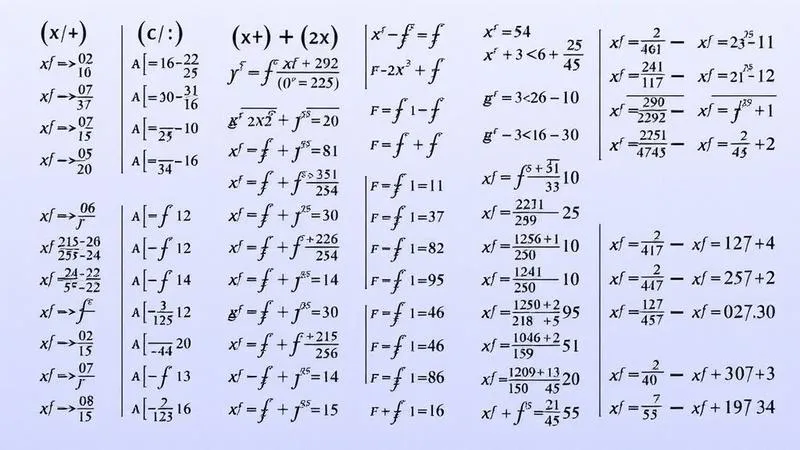 (x/+)
xf → 02/10
xf → 07/37
xf → 07/15
xf → 05/20
xf → 06/r
xf 215-20/255-24
xf = 24-22/55-22
xf → f
xf → 02/15
xf → 07/r
xf → 08/15
(c/:)
A[=16-22/25
A[=30-31/16
A[=__/25-10
A[=__/34-16
A[-f 12
A[-f 12
A[-f 14
A[-3/125 12
A[__/-44 20
A[-f 13
A[-2/123 16
(x+) + (2x)
xf+292
(0°=225)
=20
xf = f + J =81
351/254
xf = f + J =30
xf = f + f +226/254
xf = f + J =14
gf = f + J =30
xf = f + f +215/256
xf - f + J =14
xf = f + J =15
x^f - f = f
F-2x³ + f
F = f 1-f
F = f + f
F = f 1=11
F = f 1=37
F = f 1=82
F = f 1=95
F = f 1=46
F = f 1=46
F = f 1=86
F + f 1=16
x^f = 54
x^f + 3 < 6 + 25/45
g^f = 3 < 26 - 10
g^f - 3 < 16 - 30
33 10
25
xf = 1256+1/250 10
xf = 1241/250 - 10
xf = 1250+2/218 +5 95
xf = 1046+2/159 51
xf = 1209+13/150 45 20
= 21/45 55
xf = 2/461 -
xf = 241/117 -
xf = 290/2292 -
xf = 2251/4745 - xf = 2/45 +2
xf = 2/417 - xf = 127+4
xf = 2/447 - xf = 257+2
xf = 127/457 - xf = 027.30
xf = 2/40 - xf + 307+3
xf = 7/55 - xf + 197 34